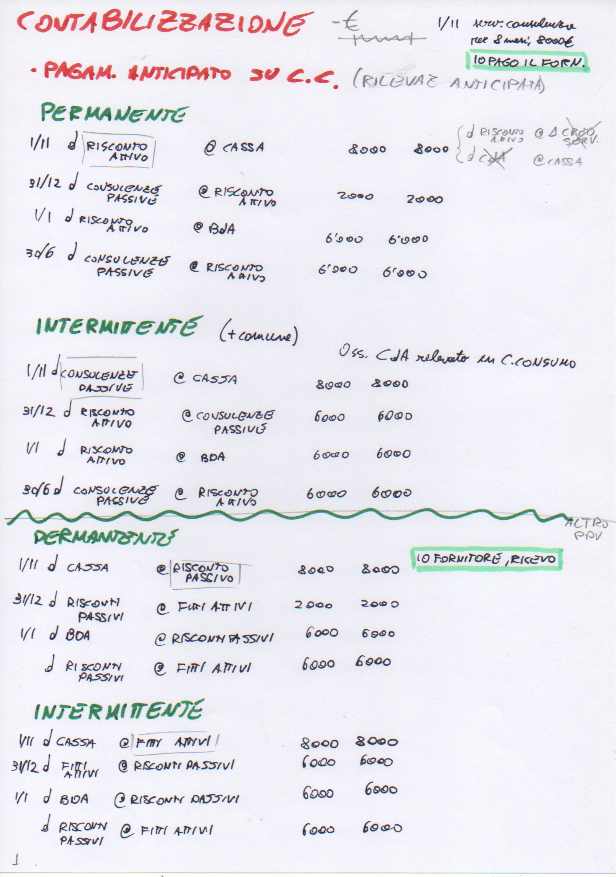 CONTABILIZZAZIONE
-€
1/11 serv. consulenza
per 8 mesi, 8000€
IO PAGO IL FORN.
• PAGAM. ANTICIPATO SU C.C. (RILEVAZ ANTICIPATA)
PERMANENTE
1/11 d RISCONTO ATTIVO @ CASSA 8000 8000
{ d RISCONTO @ Δ CRED SERV.
{ d CdA @ CASSA
31/12 d CONSULENZE PASSIVE @ RISCONTO ATTIVO 2000 2000
1/1 d RISCONTO ATTIVO @ BDA 6'000 6'000
30/6 d CONSULENZE PASSIVE @ RISCONTO ATTIVO 6'000 6'000
INTERMITTENTE (+comune)
Oss. CdA relevato in C.CONSUMO
1/11 d CONSULENZE PASSIVE @ CASSA 8000 8000
31/12 d RISCONTO ATTIVO @ CONSULENZE PASSIVE 6000 6000
1/1 d RISCONTO ATTIVO @ BDA 6000 6000
30/6 d CONSULENZE PASSIVE @ RISCONTO ATTIVO 6000 6000
ALTRO
PDV
PERMANTENTE
IO FORNITORE, RICEVO
1/11 d CASSA @ RISCONTO PASSIVO 8000 8000
31/12 d RISCONTI PASSIVI @ FITTI ATTIVI 2000 2000
1/1 d BDA @ RISCONTI PASSIVI 6000 6000
d RISCONTI PASSIVI @ FITTI ATTIVI 6000 6000
INTERMITTENTE
1/11 d CASSA @ FITTI ATTIVI 8000 8000
31/12 d FITTI ATTIVI @ RISCONTI PASSIVI 6000 6000
1/1 d BDA @ RISCONTI PASSIVI 6000 6000
d RISCONTI PASSIVI @ FITTI ATTIVI 6000 6000
1